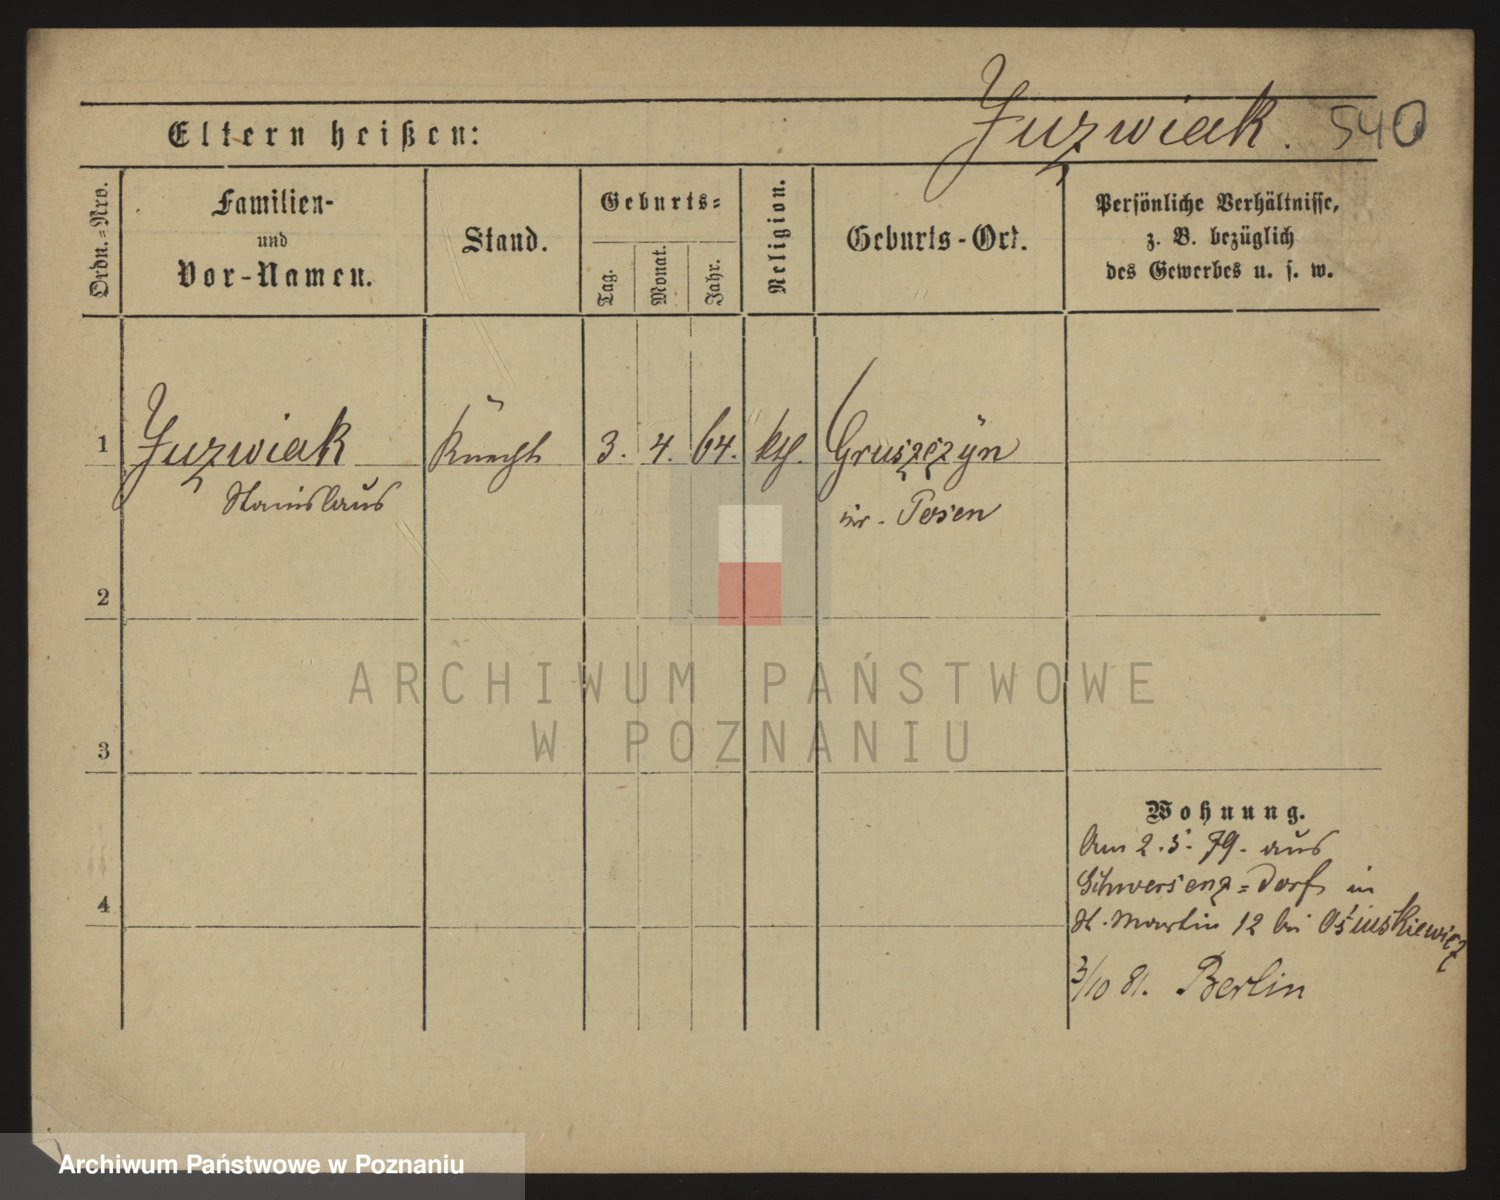 Juzwiak. 540
Eltern heißen:
Ordn.=Nro.
Familien-
und
Vor-Namen.
Stand.
Geburts=
Tag.
Monat.
Jahr.
Religion.
Geburts-Ort.
Persönliche Verhältnisse,
z. B. bezüglich
des Gewerbes u. s. w.
1 Juzwiak Knecht 3. 4. 64. kth. Gruszczyn
Stanislaus Posen
2
3
4
ARCHIWUM PAŃSTWOWE
W POZNANIU
Wohnung.
Am 2.5.79. aus
Schwersenz=Dorf in
St. Martin 12 bei
3/10 81. Berlin
Archiwum Państwowe w Poznaniu